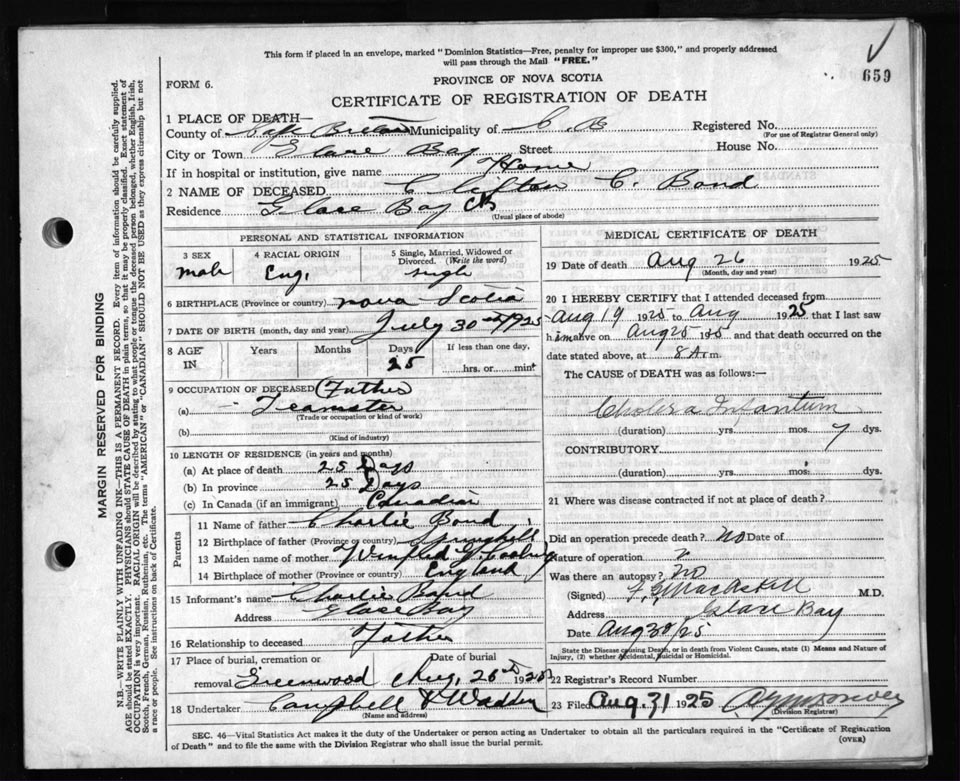 This form if placed in an envelope, marked "Dominion Statistics—Free, penalty for improper use $300," and properly addressed
will pass through the Mail "FREE."
659
FORM 6.
PROVINCE OF NOVA SCOTIA
CERTIFICATE OF REGISTRATION OF DEATH
1 PLACE OF DEATH—
County of Cape Breton Municipality of C. B Registered No.
(For use of Registrar General only)
City or Town Glace Bay Street House No.
If in hospital or institution, give name Home
2 NAME OF DECEASED Clifton C. Bond
Residence Glace Bay CB
(Usual place of abode)
PERSONAL AND STATISTICAL INFORMATION
3 SEX 4 RACIAL ORIGIN 5 Single, Married, Widowed or
Divorced. (Write the word)
male Eng. single
6 BIRTHPLACE (Province or country) nova Scotia
7 DATE OF BIRTH (month, day and year) July 30th/1925
8 AGE Years Months Days If less than one day,
IN 25 hrs. or mins
9 OCCUPATION OF DECEASED (Father
(a) Teamster
(Trade or occupation or kind of work)
(b)
(Kind of industry)
10 LENGTH OF RESIDENCE (in years and months)
(a) At place of death 25 Days
(b) In province 25 Days
(c) In Canada (if an immigrant) Canadian
Parents
11 Name of father Charlie Bond
12 Birthplace of father (Province or country) Springhill
13 Maiden name of mother Winifred
14 Birthplace of mother (Province or country) England
15 Informant's name Charlie Bond
Address Glace Bay
16 Relationship to deceased Father
17 Place of burial, cremation or Date of burial
removal Greenwood Aug. 26th 1925
18 Undertaker Campbell & Wadden
(Name and address)
MEDICAL CERTIFICATE OF DEATH
19 Date of death Aug 26 1925
(Month, day and year)
20 I HEREBY CERTIFY that I attended deceased from
Aug 19 1925 to Aug 1925 that I last saw
him alive on Aug 25 1925 and that death occurred on the
date stated above, at 8 A m.
The CAUSE OF DEATH was as follows:—
Cholera Infantum
(duration) yrs. mos. 7 dys.
CONTRIBUTORY
(duration) yrs. mos. dys.
21 Where was disease contracted if not at place of death?
Did an operation precede death? No Date of
Nature of operation
Was there an autopsy? No
(Signed) M.D.
Address Glace Bay
Date Aug 30/25
State the Disease causing Death, or in death from Violent Causes, state (1) Means and Nature of
Injury, (2) whether Accidental, Suicidal or Homicidal.
22 Registrar's Record Number
23 Filed Aug 31 1925
(Division Registrar)
SEC. 46—Vital Statistics Act makes it the duty of the Undertaker or person acting as Undertaker to obtain all the particulars required in the "Certificate of Registration
of Death" and to file the same with the Division Registrar who shall issue the burial permit.
(OVER)
MARGIN RESERVED FOR BINDING
N.B.—WRITE PLAINLY WITH UNFADING INK—THIS IS A PERMANENT RECORD. Every item of information should be carefully supplied.
AGE should be stated EXACTLY. PHYSICIANS should STATE CAUSE OF DEATH in plain terms, so that it may be properly classified. Exact statement of
OCCUPATION is very important. RACIAL ORIGIN will be described by stating to what people or tongue the deceased person belonged, whether English, Irish,
Scotch, French, German, Russian, Ruthenian, etc. The terms "AMERICAN" or "CANADIAN" SHOULD NOT BE USED as they express citizenship but not
a race or people. See instructions on back of Certificate.